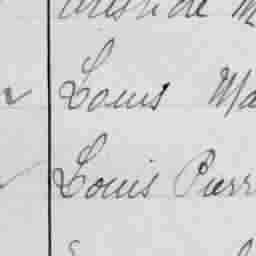 Louis Ma
Louis Pierr